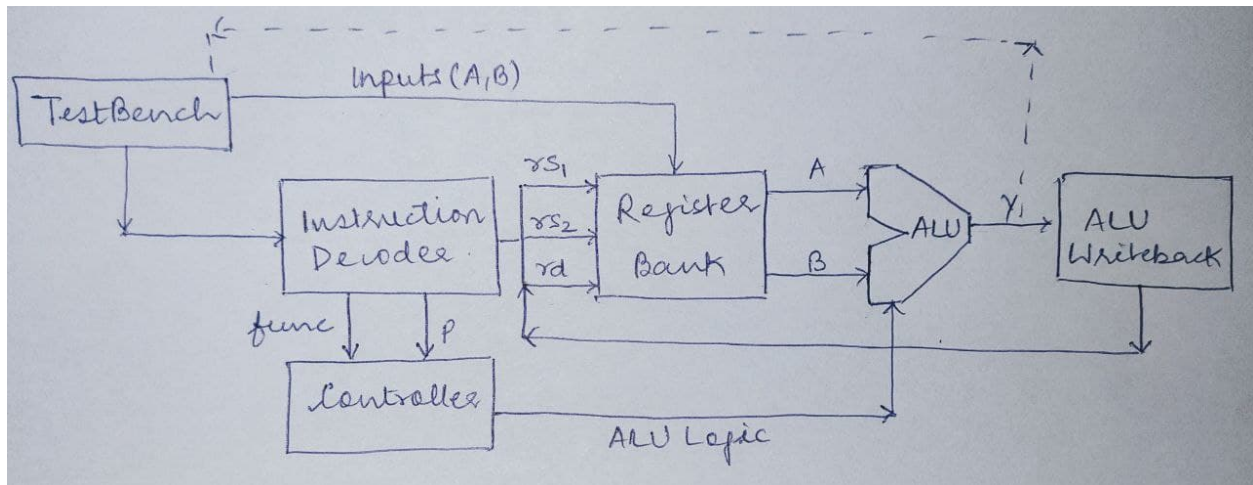 Inputs (A,B)
TestBench
Instruction
Decoder.
rs1
rs2
rd
Register
Bank
A
B
ALU
Y1
ALU
Writeback
func
P
Controller
ALU Logic